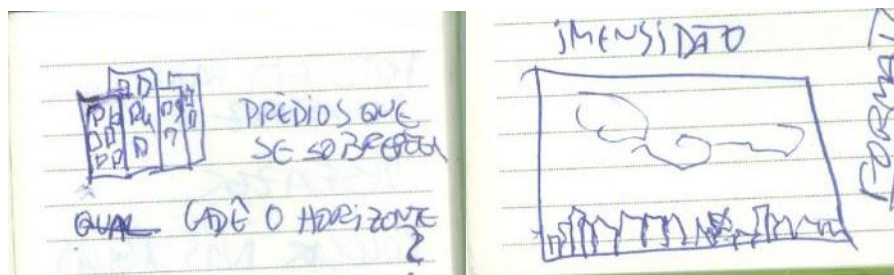 PRÉDIOS QUE
SE SOBREPÕEM
QUAL CADÊ O HORIZONTE
?
IMENSIDÃO